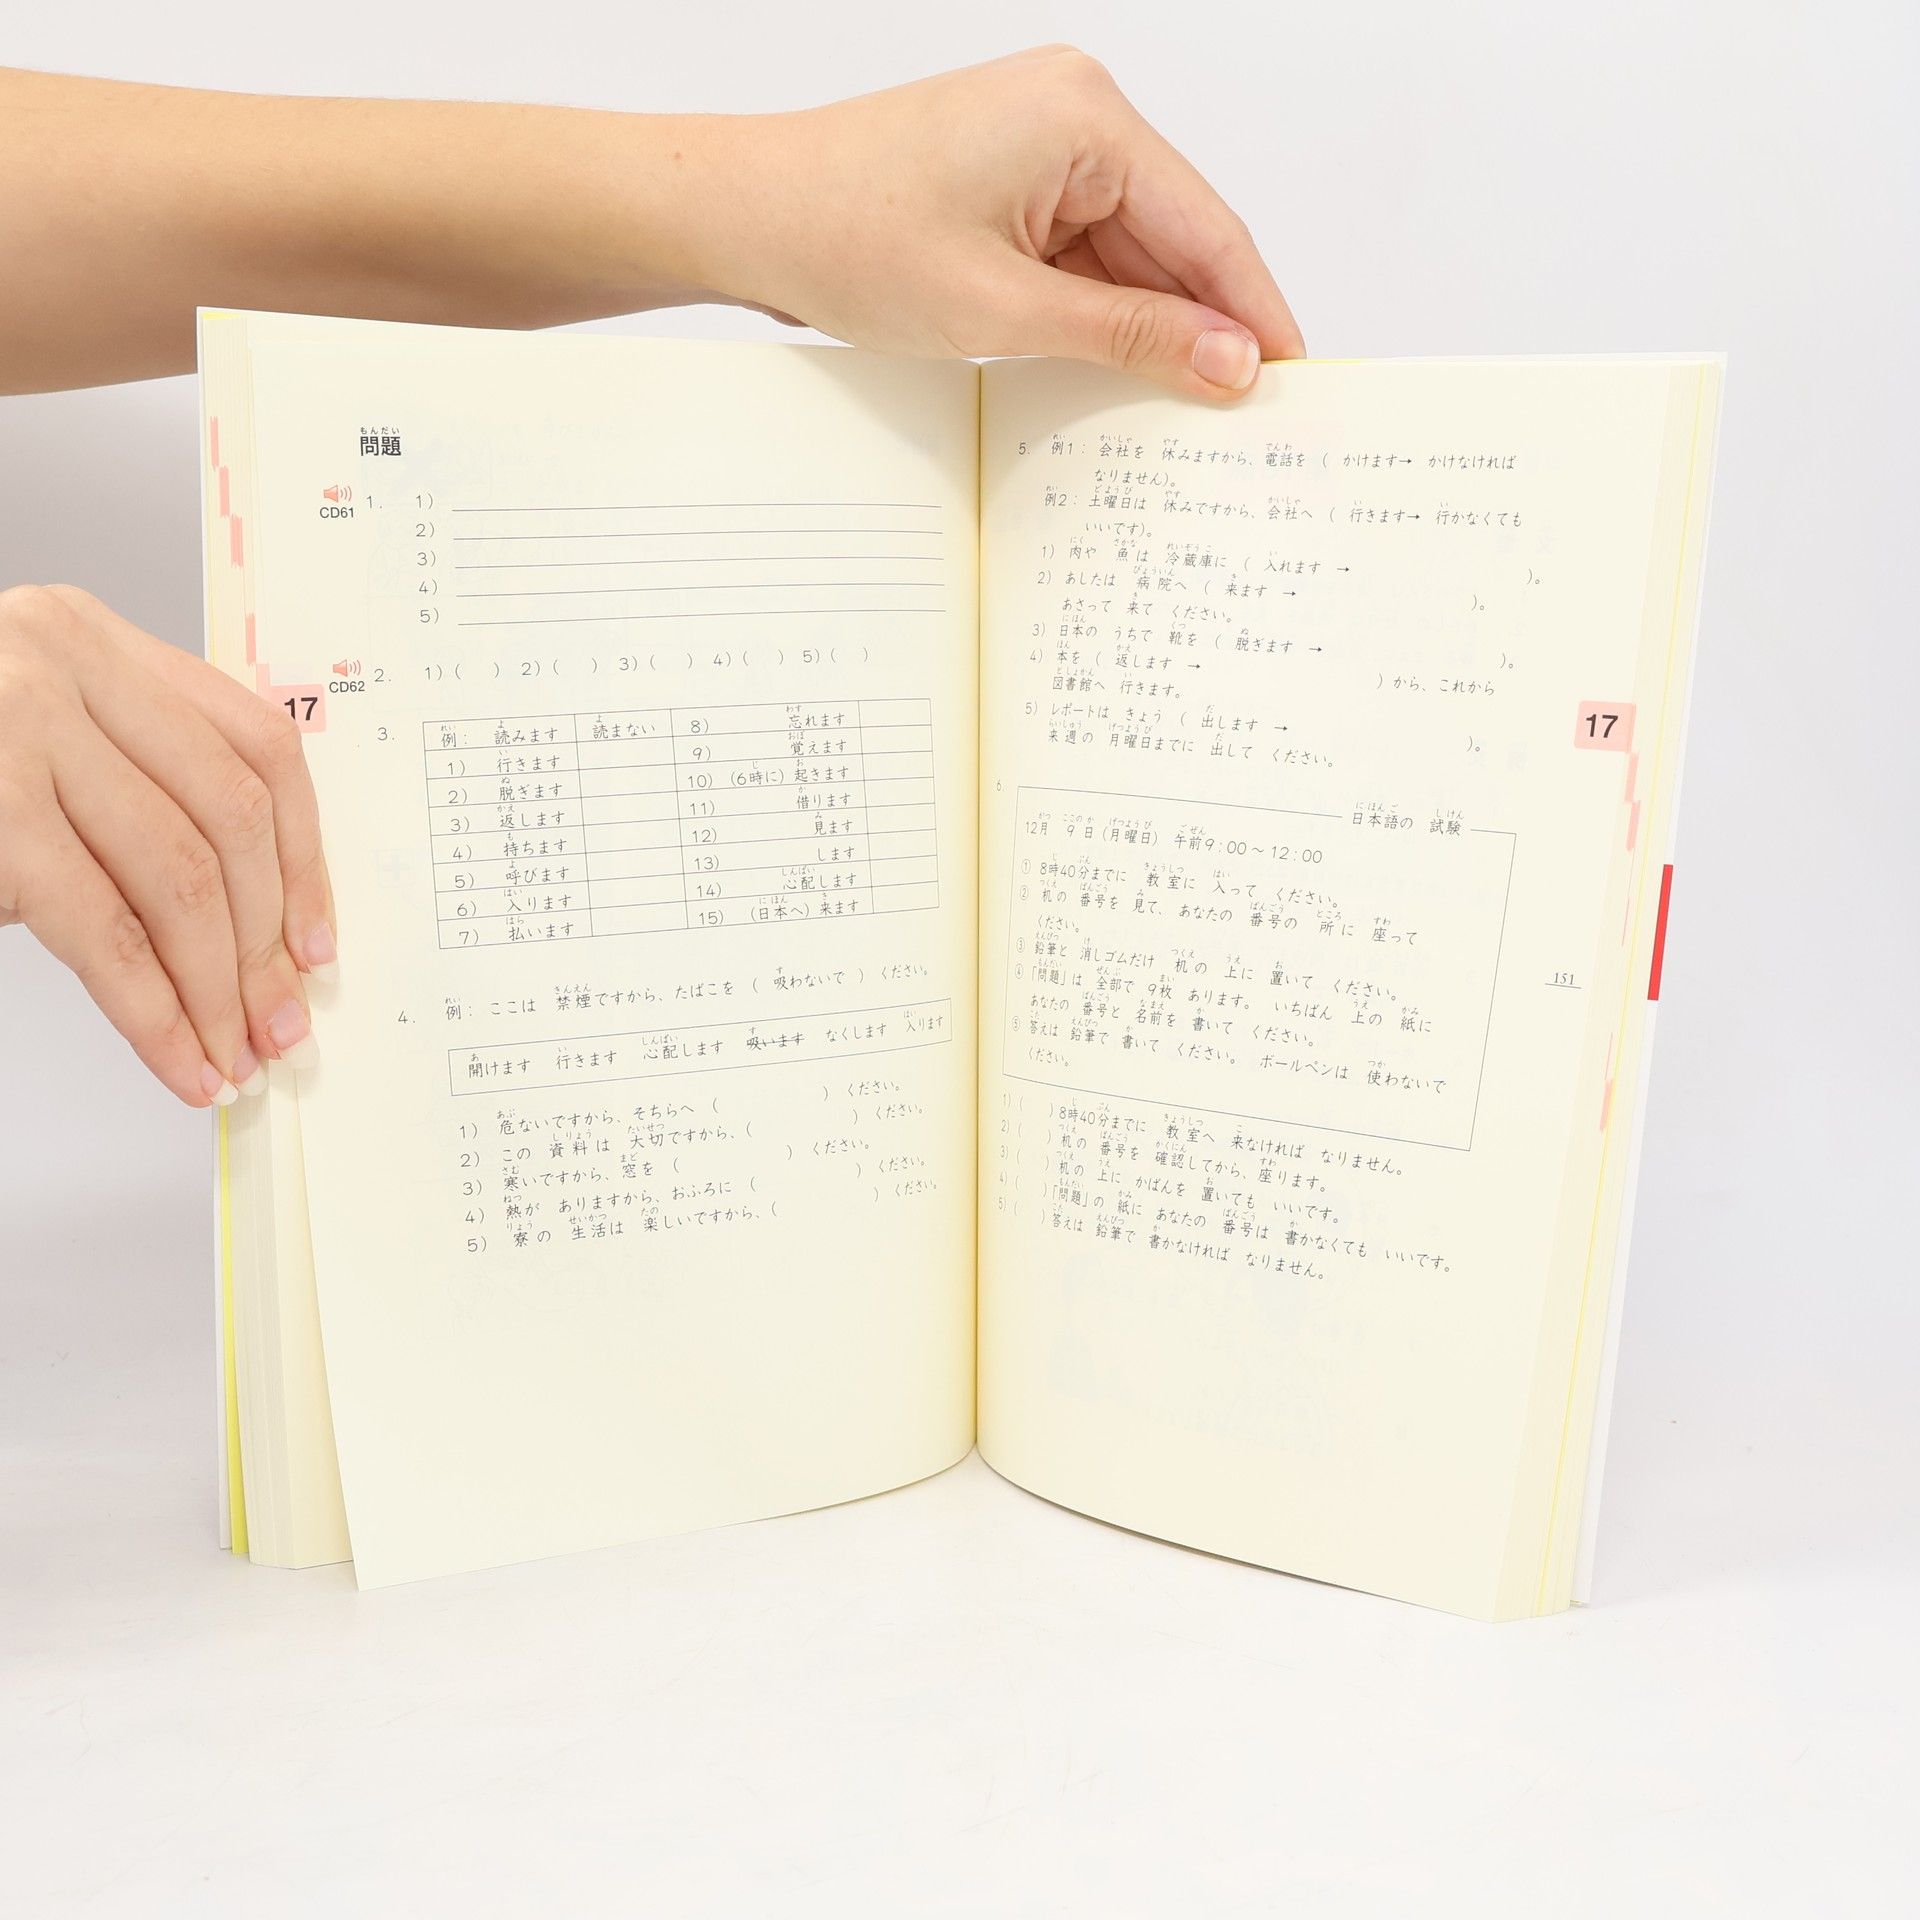 問題
CD61 1. 1)
2)
3)
4)
5)
CD62 2. 1) ( ) 2) ( ) 3) ( ) 4) ( ) 5) ( )
17
3. 例: 読みます 読まない 8) 忘れます
1) 行きます 9) 覚えます
2) 脱ぎます 10) (6時に) 起きます
3) 返します 11) 借ります
4) 持ちます 12) 見ます
5) 呼びます 13) します
6) 入ります 14) 心配します
7) 払います 15) (日本へ) 来ます
4. 例: ここは 禁煙ですから、たばこを ( 吸わないで ) ください。
開けます 行きます 心配します 吸います なくします 入ります
1) 危ないですから、そちらへ ( ) ください。
2) この 資料は 大切ですから、( ) ください。
3) 寒いですから、窓を ( ) ください。
4) 熱が ありますから、おふろに ( ) ください。
5) 寮の 生活は 楽しいですから、( ) ください。
5. 例1: 会社を 休みますから、電話を ( かけます→ かけなければ
なりません)。
例2: 土曜日は 休みですから、会社へ ( 行きます→ 行かなくても
いいです)。
1) 肉や 魚は 冷蔵庫に ( 入れます → )。
2) あしたは 病院へ ( 来ます → )。
あさって 来て ください。
3) 日本の うちで 靴を ( 脱ぎます → )。
4) 本を ( 返します → ) から、これから
図書館へ 行きます。
5) レポートは きょう ( 出します → )。
来週の 月曜日までに 出して ください。
17
6. 日本語の 試験
12月 9日 (月曜日) 午前9:00～12:00
① 8時40分までに 教室に 入って ください。
② 机の 番号を 見て、あなたの 番号の 所に 座って
ください。
③ 鉛筆と 消しゴムだけ 机の 上に 置いて ください。
④ 「問題」は 全部で 9枚 あります。 いちばん 上の 紙に
あなたの 番号と 名前を 書いて ください。
⑤ 答えは 鉛筆で 書いて ください。 ボールペンは 使わないで
ください。
151
1) ( ) 8時40分までに 教室へ 来なければ なりません。
2) ( ) 机の 番号を 確認してから、座ります。
3) ( ) 机の 上に かばんを 置いても いいです。
4) ( ) 「問題」の 紙に あなたの 番号は 書かなくても いいです。
5) ( ) 答えは 鉛筆で 書かなければ なりません。